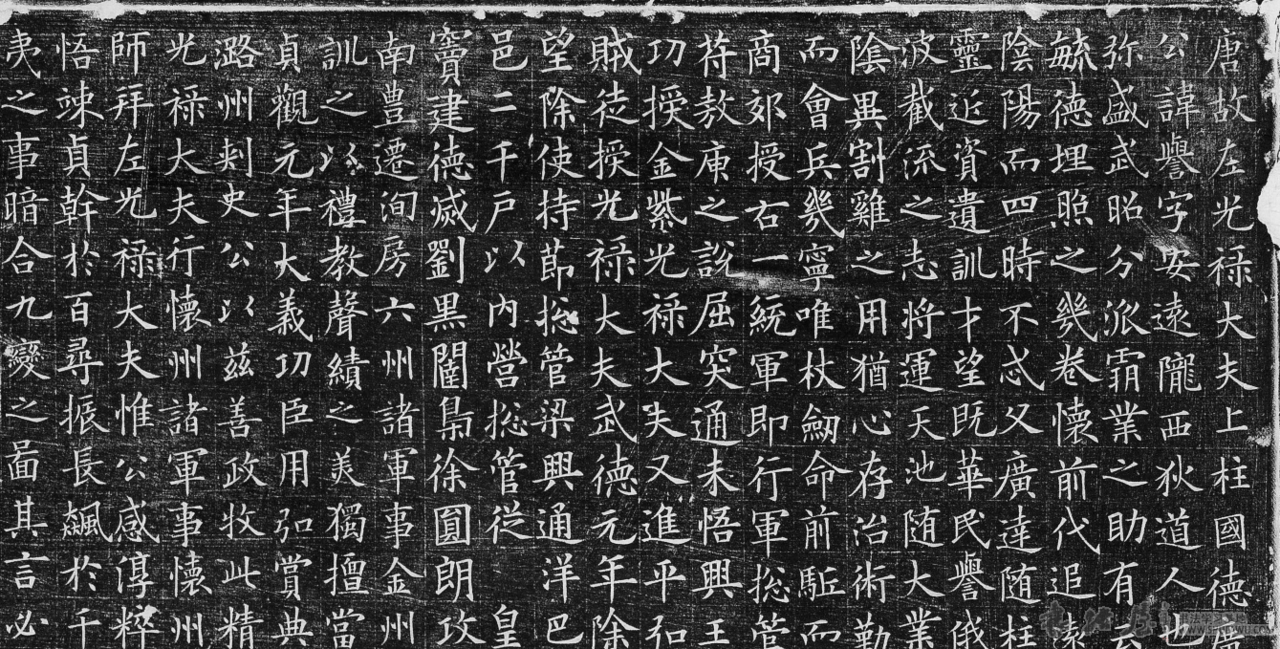 唐故左光禄大夫上柱國德廣
公諱譽字安遠隴西狄道人也
弥盛武昭分派霸業之助有
毓德埋照之幾卷懷前代追遠
陰陽而四時不忒父廣達随柱
靈近資遺訓才望既華民譽俄
波截流之志將運天池随大業
陰異割雞之用猶心存治術勤
而會兵幾寧唯杖劒命前駈而
商郊授右一統軍即行軍揔管
苻敖庾之說屈突通未悟興王
功授金紫光禄大夫又進平弘
賊徒授光禄大夫武德元年除
望除使持節揔管梁興通洋巴
邑二千戶以内營揔管従　皇
竇建德滅劉黑闥梟徐圓朗攻
南豊遷洵房六州諸軍事金州
訓之以禮教聲績之美獨擅當
貞觀元年大義功臣用弘賞典
潞州刺史公以兹善政牧此精
光禄大夫行懷州諸軍事懷州
師拜左光禄大夫惟公感淳粹
悟竦貞幹於百尋振長飆於千
夷之事暗合九變之啚其言必